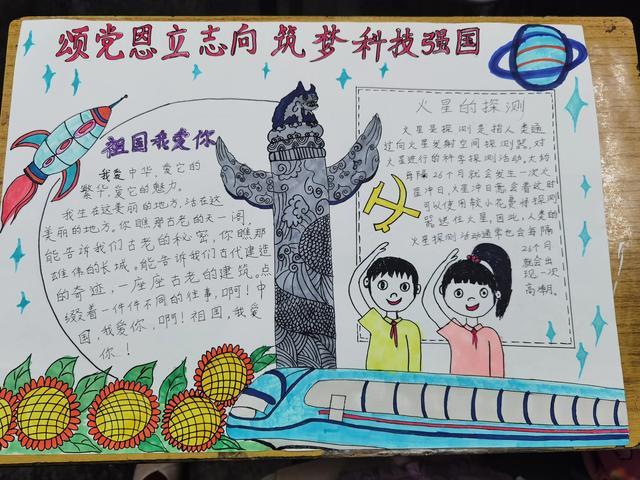 颂党恩立志向 筑梦科技强国
祖国我爱你
我爱中华,爱它的
繁华,爱它的魅力。
我生在这美丽的地方,活在这
美丽的地方,你瞧那古老的天一阁,
能告诉我们古老的秘密,你瞧那
雄伟的长城。能告诉我们古代建造
的奇迹,一座座古老的建筑。点
缀着一件件不同的往事,啊!中
国,我爱你,啊!祖国,我爱
你!
火星的探测
火星是探测是指人类通
过向火星发射空间探测器,对
火星进行的科学探测活动。大约
每隔26个月就会发生一次火
星冲日,火星冲日意味着这时
可以使用较小花费将探测
器送往火星,因此,人类的
火星探测活动通常也会每隔
26个月
就会出
现一次
高峰。